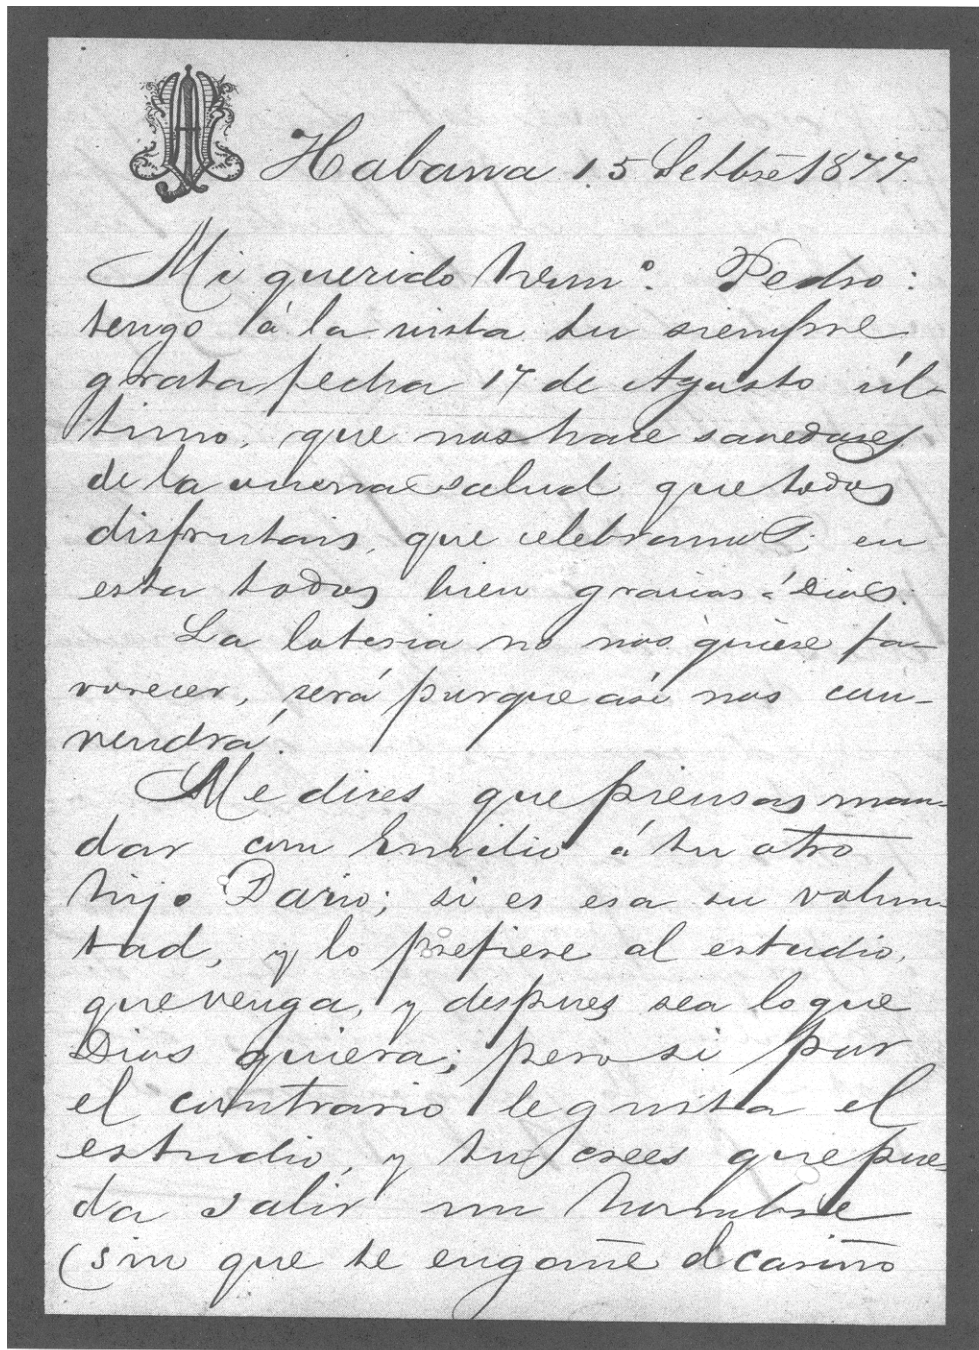 Habana 15 Setbre 1877.
Mi querido herm.º Pedro:
tengo á la vista tu siempre
grata fecha 17 de Agosto úl-
timo, que nos hace savedores
de la buena salud que todos
disfrutais, que celebramos; en
esta todos bien gracias á Dios.
La loteria no nos quiere fa-
vorecer, será porque asi nos con-
vendrá.
Me dices que piensas man-
dar con Emilio á tu otro
hijo Dario; si es esa su volun-
tad, y lo prefiere al estudio,
que venga, y despues sea lo que
Dios quiera; pero si por
el contrario le gusta el
estudio, y tu crees que pue-
da salir un hombre
(sin que te engañe el cariño